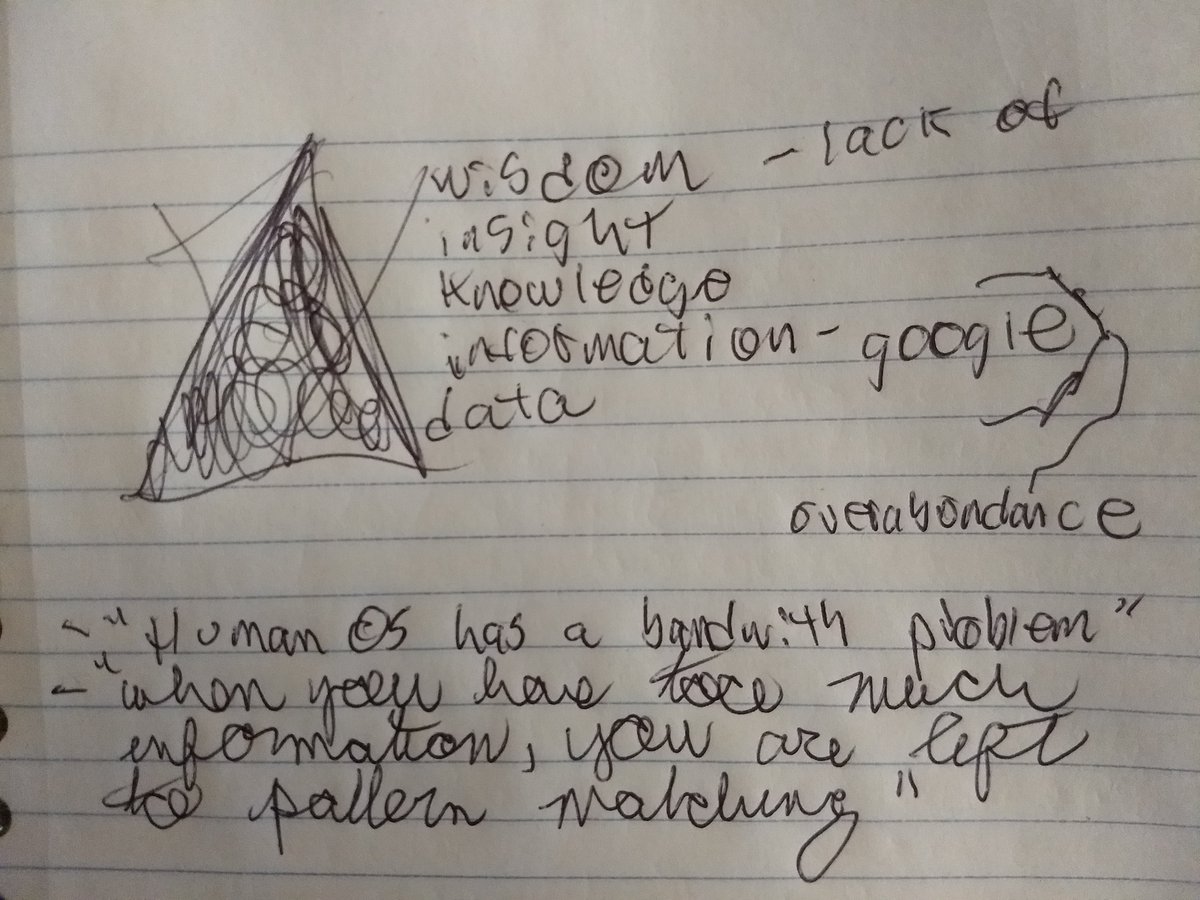 wisdom - lack of
insight
knowledge
information - google
data
overabondance
- "Human OS has a bandwith problem"
- "when you have too much
information, you are left
to pattern matching"